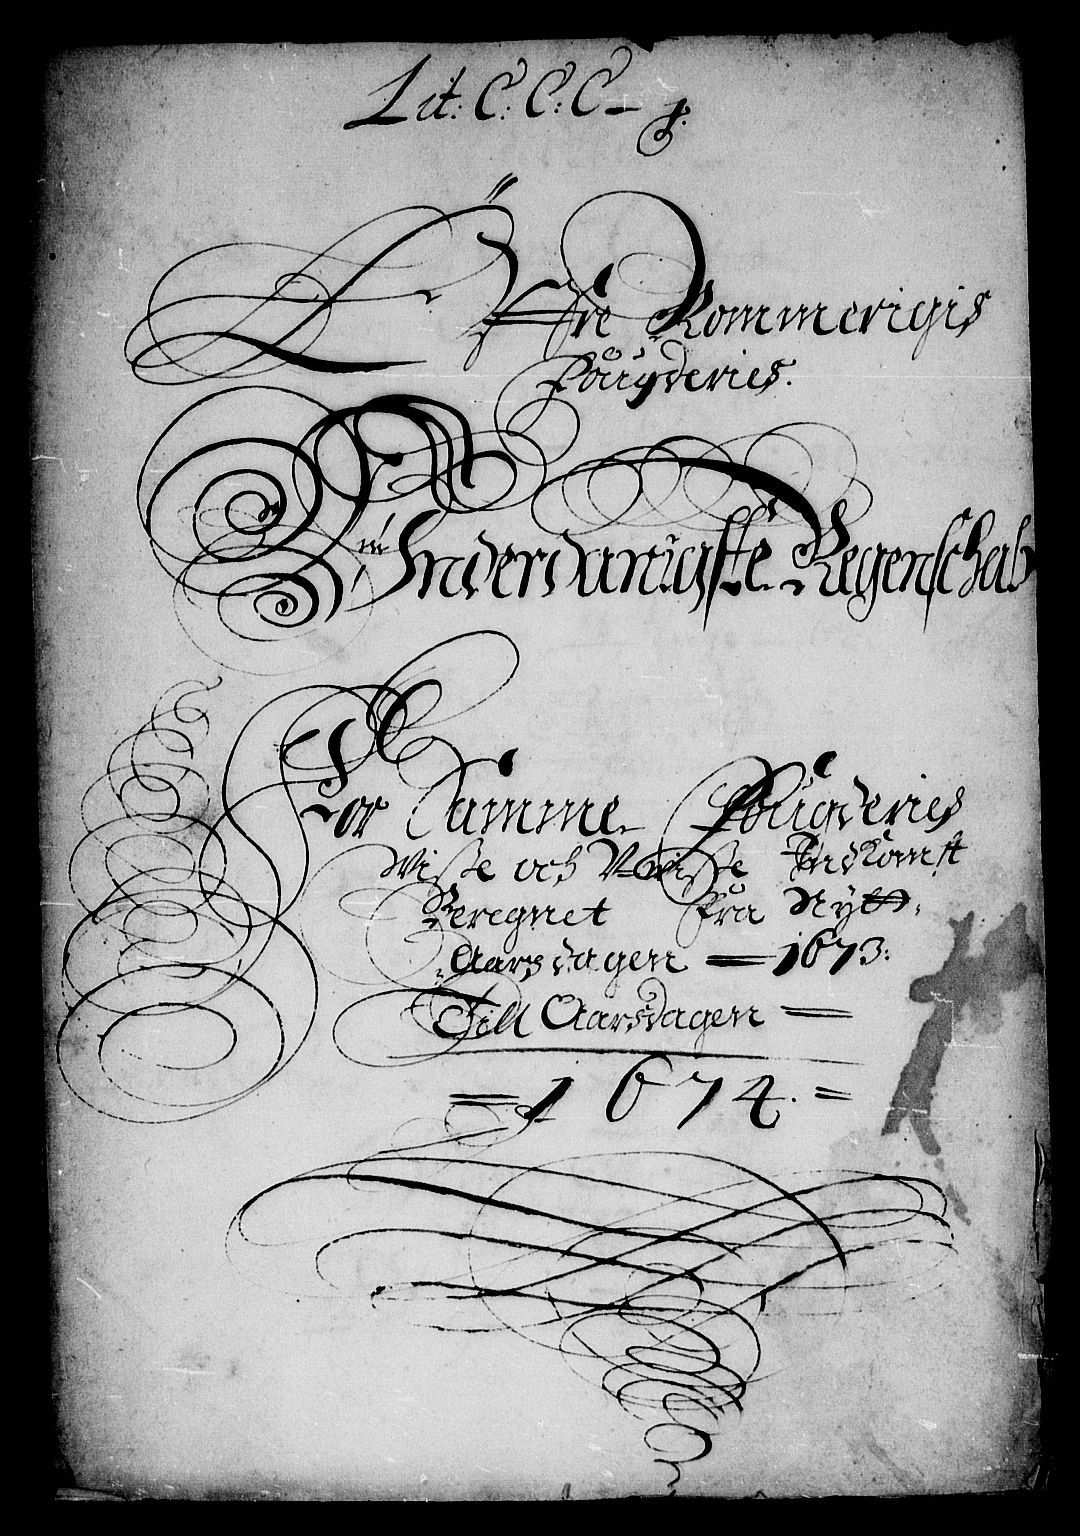 Lit: C: C: C – J:
Øfre Rommerigis
Fougderies.
Underdanigste Regenschab
For Samme Fougderies
Wisse och Uwisse Indkomst
Beregnet fra Nytt
Aarsdagen = 1673:
Till Aarsdagen =
= 1674. =